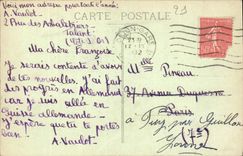 Voici mon adresse pour toute l'année :
A. Naudot.
2 Rue des Arbalétriers
Talant
(Côte d'Or)
CARTE POSTALE
Ma chère Françoise,
Je serais contente d'avoir
de tes nouvelles. J'ai fait
des progrès en Allemand
car je suis allée en
Suisse allemande.
J'espère que tu te portes
bien.
A. Naudot.
Mlle Pineau
37 Avenue Duquesne
Paris
à par Guillon
(7e)
Yonne